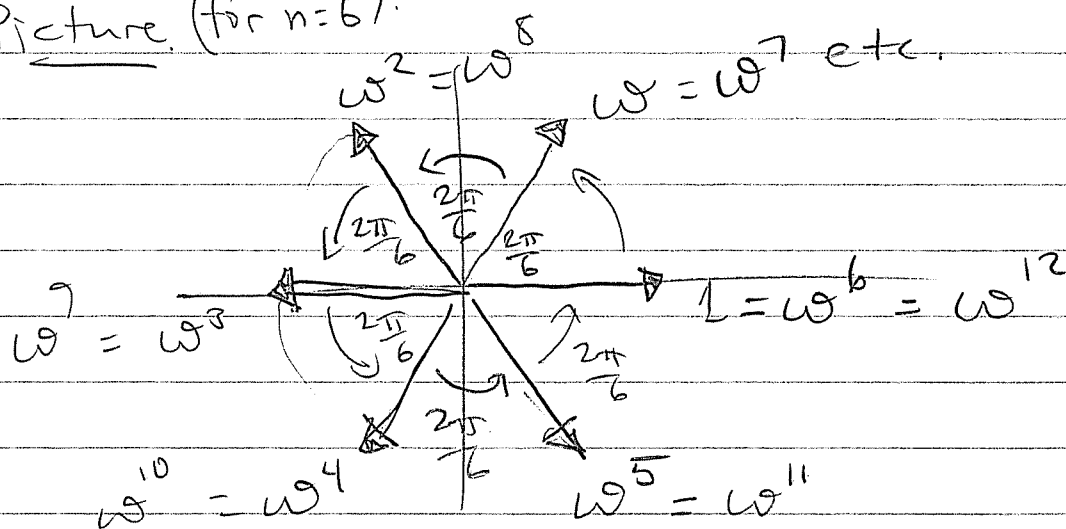 Picture. (for n=6).
ω² = ω⁸
ω = ω⁷ etc.
2π/6
2π/6
2π/6
1 = ω⁶ = ω¹²
ω⁹ = ω³
2π/6
2π/6
2π/6
ω¹⁰ = ω⁴
ω⁵ = ω¹¹